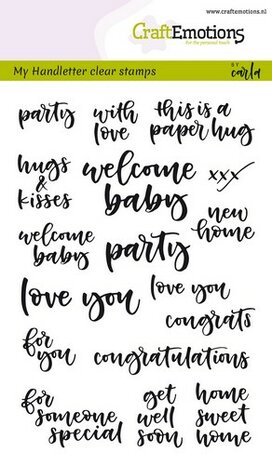 www.craftemotions.nl
CraftEmotions
for the personal touch
My Handletter clear stamps
BY carla
party
with
love
this is a
paper hug
hugs
&
kisses
welcome
baby
xxx
new
home
welcome
baby
party
love you
love you
congrats
for
you
congratulations
for
someone
special
get
well
soon
home
sweet
home